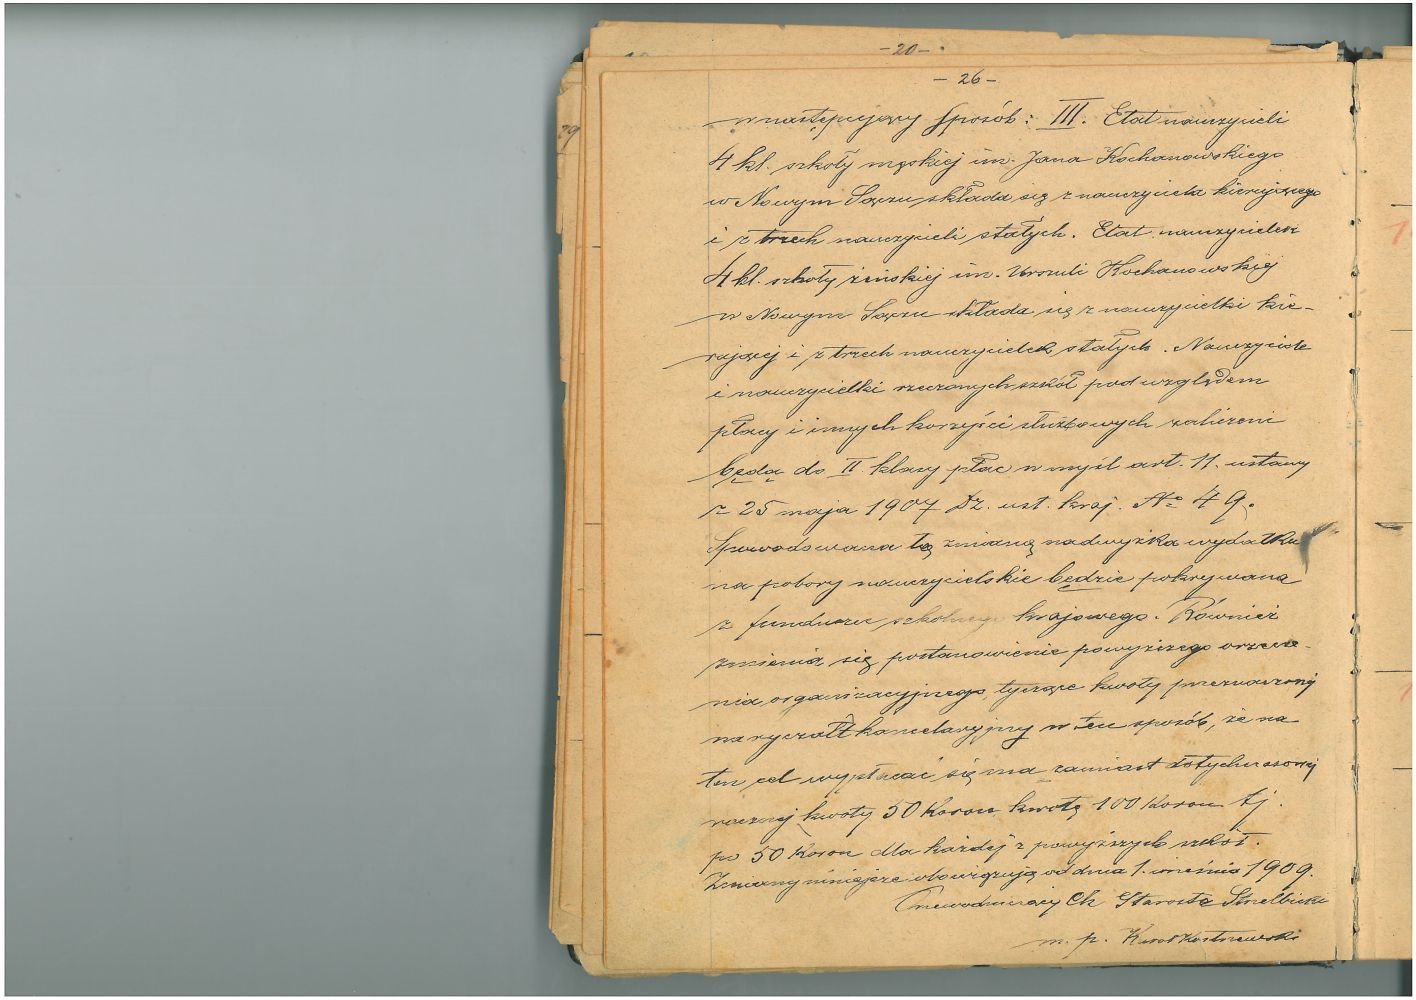 - 20 -
- 26 -
29
w następujący sposób: III. Etat nauczycieli
4 kl. szkoły męskiej im. Jana Kochanowskiego
w Nowym Sączu składa się z nauczyciela kierującego
i z trzech nauczycieli stałych. Etat nauczycielek
4 kl. szkoły żeńskiej im. Urszuli Kochanowskiej
w Nowym Sączu składa się z nauczycielki kie-
rującej i z trzech nauczycielek stałych. Nauczyciele
i nauczycielki rzeczonych szkół pod względem
płacy i innych korzyści służbowych zaliczeni
będą do II klasy płac w myśl art. 11. ustawy
z 25 maja 1907 Dz. ust. kraj. No 49.
Spowodowana tą zmianą nadwyżka wydatku
na pobory nauczycielskie będzie pokrywana
z funduszu szkolnego krajowego. Również
zmienia się postanowienie powyższego orzecze-
nia organizacyjnego, tyczące kwoty przeznaczonej
na ryczałt kancelaryjny w ten sposób, że na
ten cel wypłacać się ma zamiast dotychczasowej
rocznej kwoty 50 Koron kwotę 100 Koron tj.
po 50 Koron dla każdej z powyższych szkół.
Zmiany niniejsze obowiązują od dnia 1. września 1909.
Przewodniczący Ck Starosta Strzelbicki
m. p.